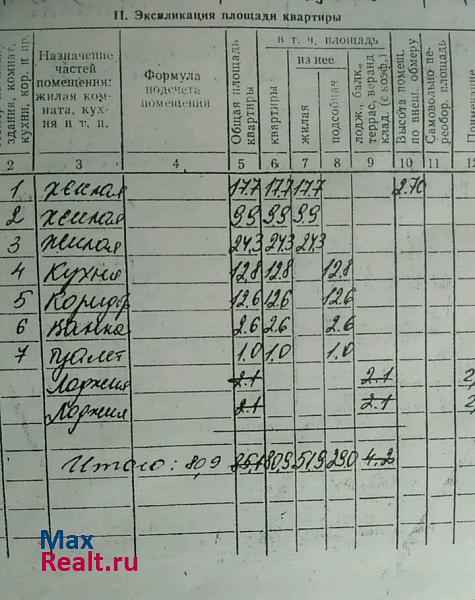 II. Экспликация площади квартиры
здания, комнат, кухни, кор. и пр.
Назначение частей помещения: жилая комната, кухня и т. п.
Формула подсчета помещения
Общая площадь квартиры
в т. ч. площадь
квартиры
из нее
жилая
подсобная
лодж., балк., террас, веранд клад. (с коэф.)
Высота помещ. по внеш. обмеру
Самовольно переобор. площадь
2 3 4 5 6 7 8 9 10 11 12
1 жилая 17.7 17.7 17.7 2.70
2 жилая 9.9 9.9 9.9
3 жилая 24.3 24.3 24.3
4 Кухня 12.8 12.8 12.8
5 Коридор 12.6 12.6 12.6
6 Ванная 2.6 2.6 2.6
7 туалет 1.0 1.0 1.0
Лоджия 2.1 2.1 2
Лоджия 2.1 2.1 2
Итого: 80,9 85,1 80,9 51,9 29.0 4.2
Max
Realt.ru